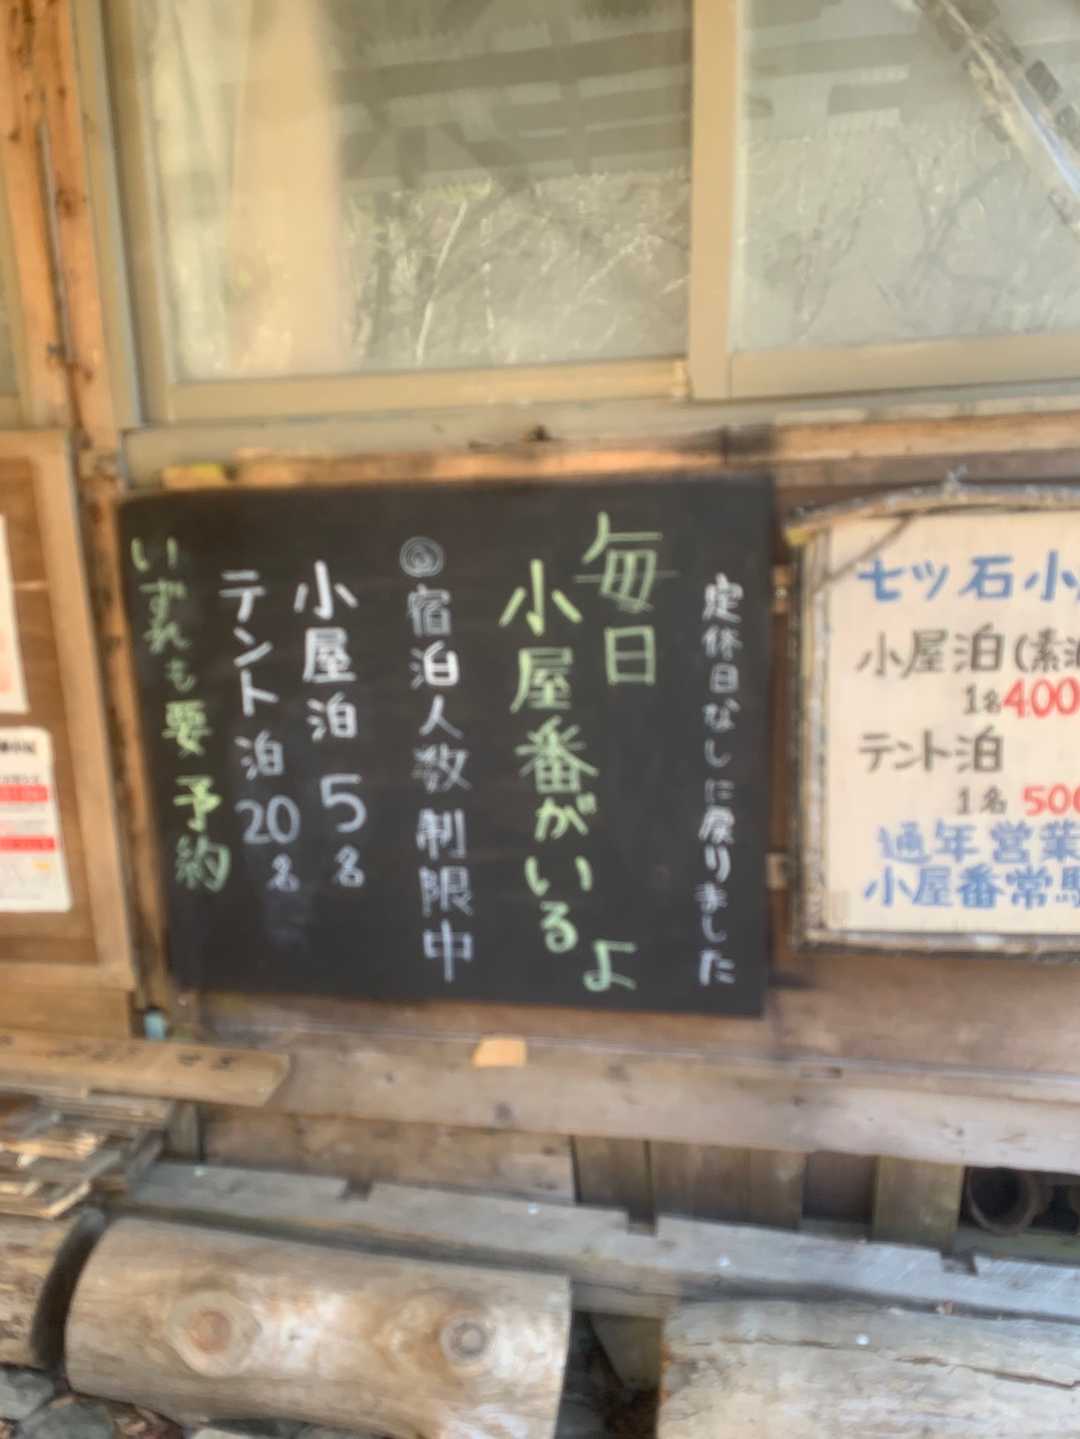 定休日なしに戻りました
毎日
小屋番がいるよ
◎宿泊人数制限中
小屋泊 5名
テント泊 20名
いずれも要予約
七ツ石小
小屋泊(素泊
1名400
テント泊
1名 500
通年営業
小屋番常駐